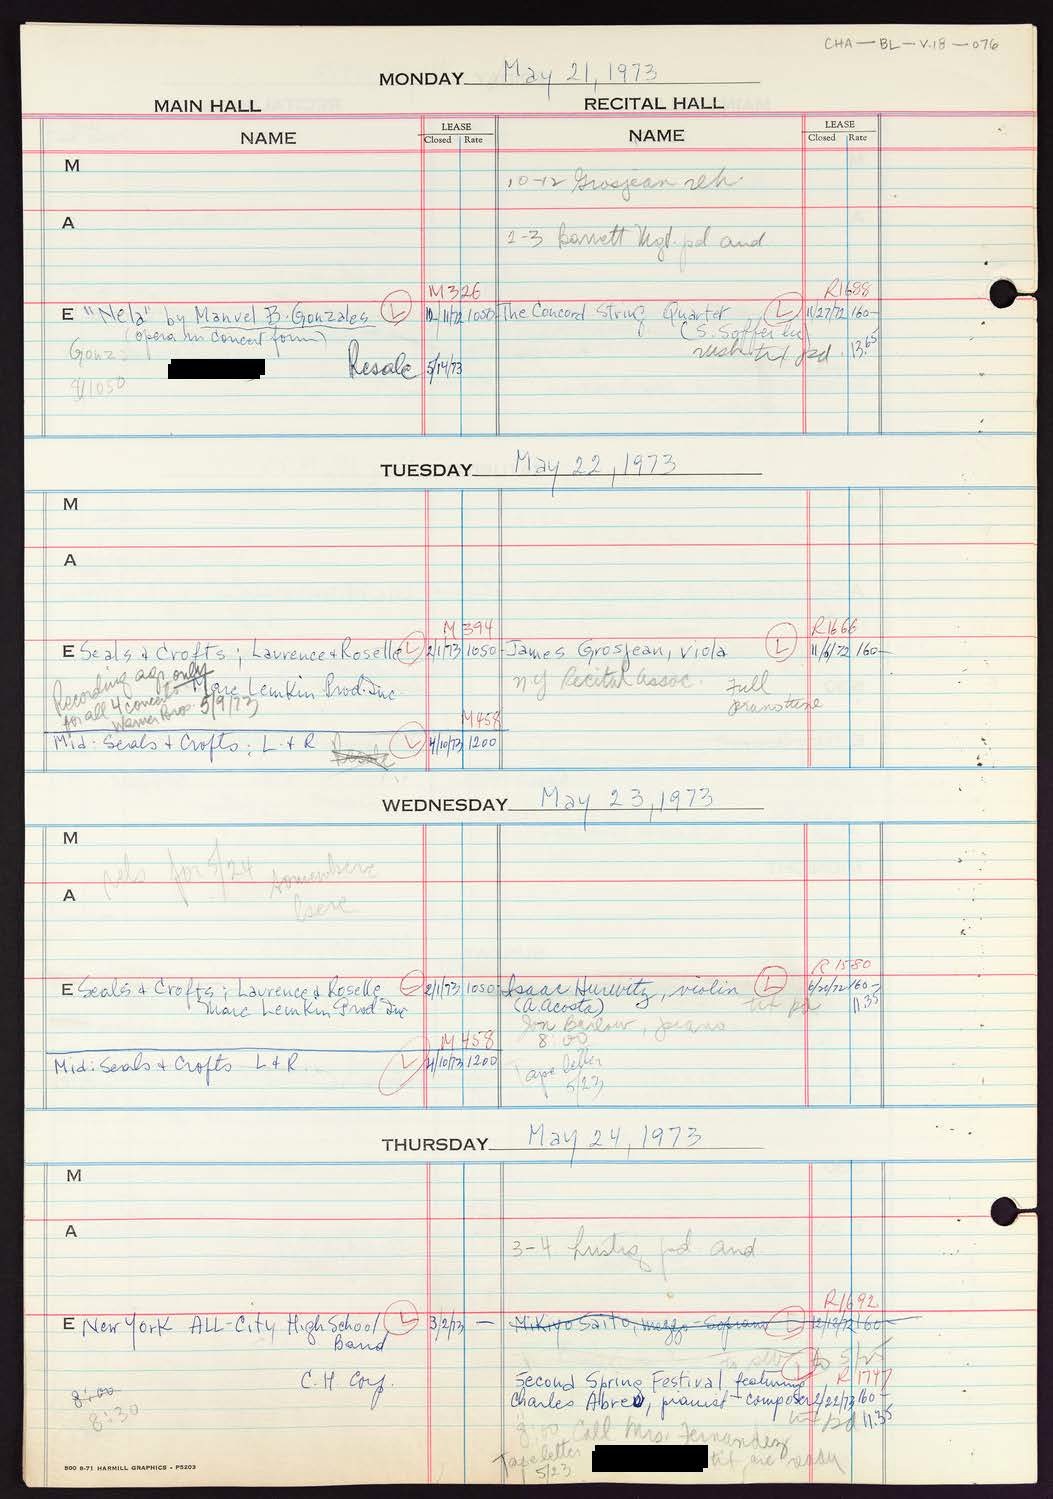 CHA-BL-V.18-076
MONDAY May 21, 1973
MAIN HALL RECITAL HALL
NAME LEASE Closed Rate NAME LEASE Closed Rate
M
10-12 Grosjean reh.
A
2-3 Barrett Mgt. pd aud
M326 R1688
E "Nela" by Manuel B. Gonzales L 1050 The Concord String Quartet L 11/27/72 160-
(opera in concert form)
Gonz.
pd 13.65
8/1050 Resale 5/14/73
TUESDAY May 22, 1973
M
A
M394 R1666
E Seals & Crofts; Laurence & Roselle L 2/1/73 1050- James Grosjean, viola L 11/6/72 160-
Marc Lemkin Prod. Inc
NY Recital Assoc. Full
Recording agr. only
for all 4 concerts
Warner Bros. 5/9/73
M458
Mid: Seals & Crofts; L & R Resale L 4/10/73 1200
WEDNESDAY May 23, 1973
M
for 5/24 somewhere
here
A
R1580
E Seals & Crofts; Laurence & Roselle L 2/1/73 1050- Isaac Hurwitz, violin L 6/20/72 160-
Marc Lemkin Prod Inc (A. Acosta) tix pd 11.35
Jon Barlow, piano
M458 8:00
Mid: Seals & Crofts L & R L 4/10/73 1200
Tape letter
5/23
THURSDAY May 24, 1973
M
A
3-4 Lustig pd aud
R1692
E New York All-City High School L 3/2/73 - Mikiyo Saito, mezzo-soprano L 12/12/72 160-
Band
to 5/25
C.H. Corp. Second Spring Festival featuring L R1747
8:00 Charles Abreu, pianist-composer 2/22/73 160-
8:30 tix pd 11.35
8:00 Call Mrs. Fernandez
Tape letter tix are ready
5/23
500 8-71 HARMILL GRAPHICS - P5203